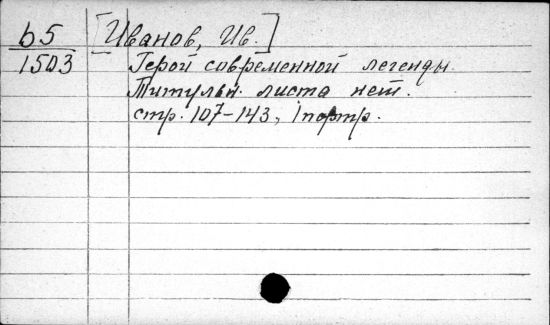 b5 [Иванов, Ив.]
1503 Герой современной легенды.
Титульн. листа нет.
стр. 107-143, 1 портр.